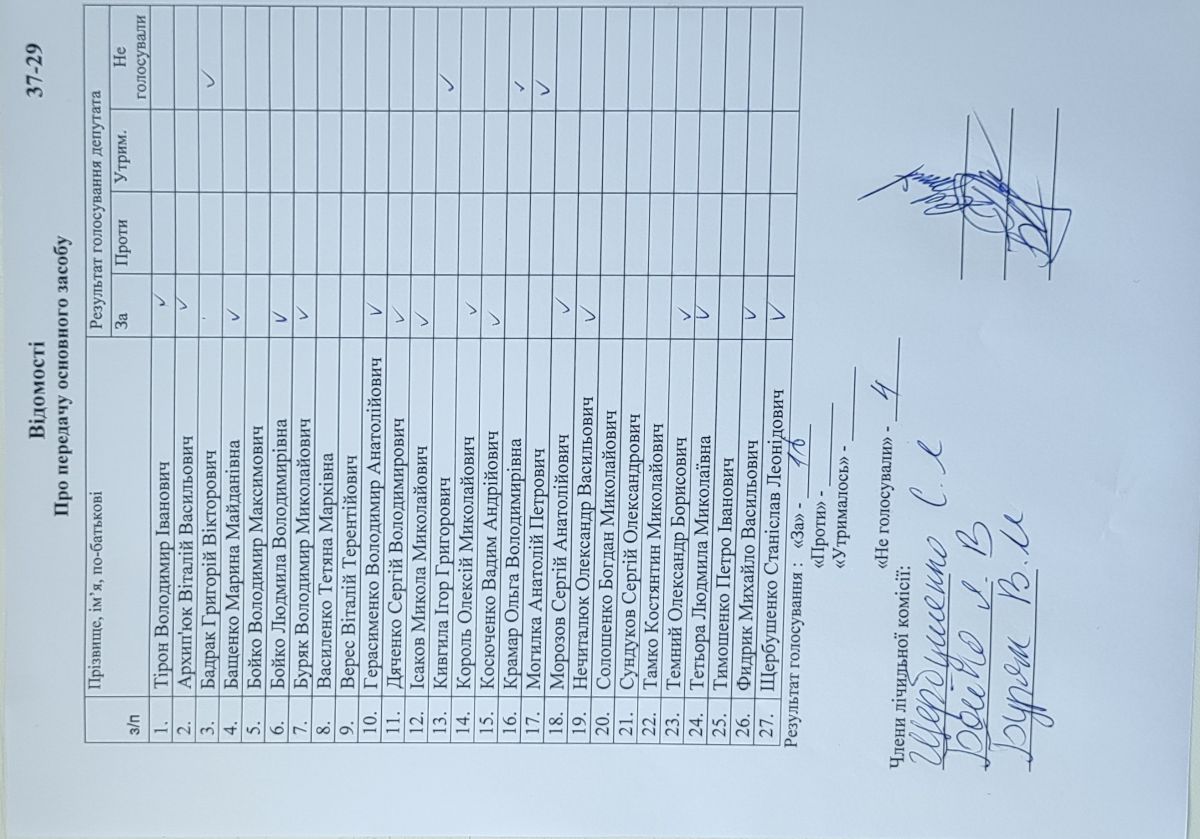 37-29
Відомості
Про передачу основного засобу
з/п Прізвище, ім’я, по-батькові Результат голосування депутата
За Проти Утрим. Не голосували
1. Тірон Володимир Іванович ✓
2. Архип'юк Віталій Васильович ✓
3. Бадрак Григорій Вікторович ✓
4. Бащенко Марина Майданівна ✓
5. Бойко Володимир Максимович
6. Бойко Людмила Володимирівна ✓
7. Буряк Володимир Миколайович ✓
8. Василенко Тетяна Марківна
9. Верес Віталій Терентійович
10. Герасименко Володимир Анатолійович ✓
11. Дяченко Сергій Володимирович ✓
12. Ісаков Микола Миколайович ✓
13. Кивгила Ігор Григорович ✓
14. Король Олексій Миколайович ✓
15. Косюченко Вадим Андрійович ✓
16. Крамар Ольга Володимирівна ✓
17. Могилка Анатолій Петрович ✓
18. Морозов Сергій Анатолійович ✓
19. Нечиталюк Олександр Васильович ✓
20. Солошенко Богдан Миколайович
21. Сундуков Сергій Олександрович
22. Тамко Костянтин Миколайович
23. Темний Олександр Борисович ✓
24. Тетьора Людмила Миколаївна ✓
25. Тимошенко Петро Іванович
26. Фидрик Михайло Васильович ✓
27. Щербушенко Станіслав Леонідович ✓
Результат голосування : «За» - 16
«Проти» -
«Утрималось» -
«Не голосували» - 4
Члени лічильної комісії:
Щербушенко С.Л
Бойко Л.В
Буряк В.М